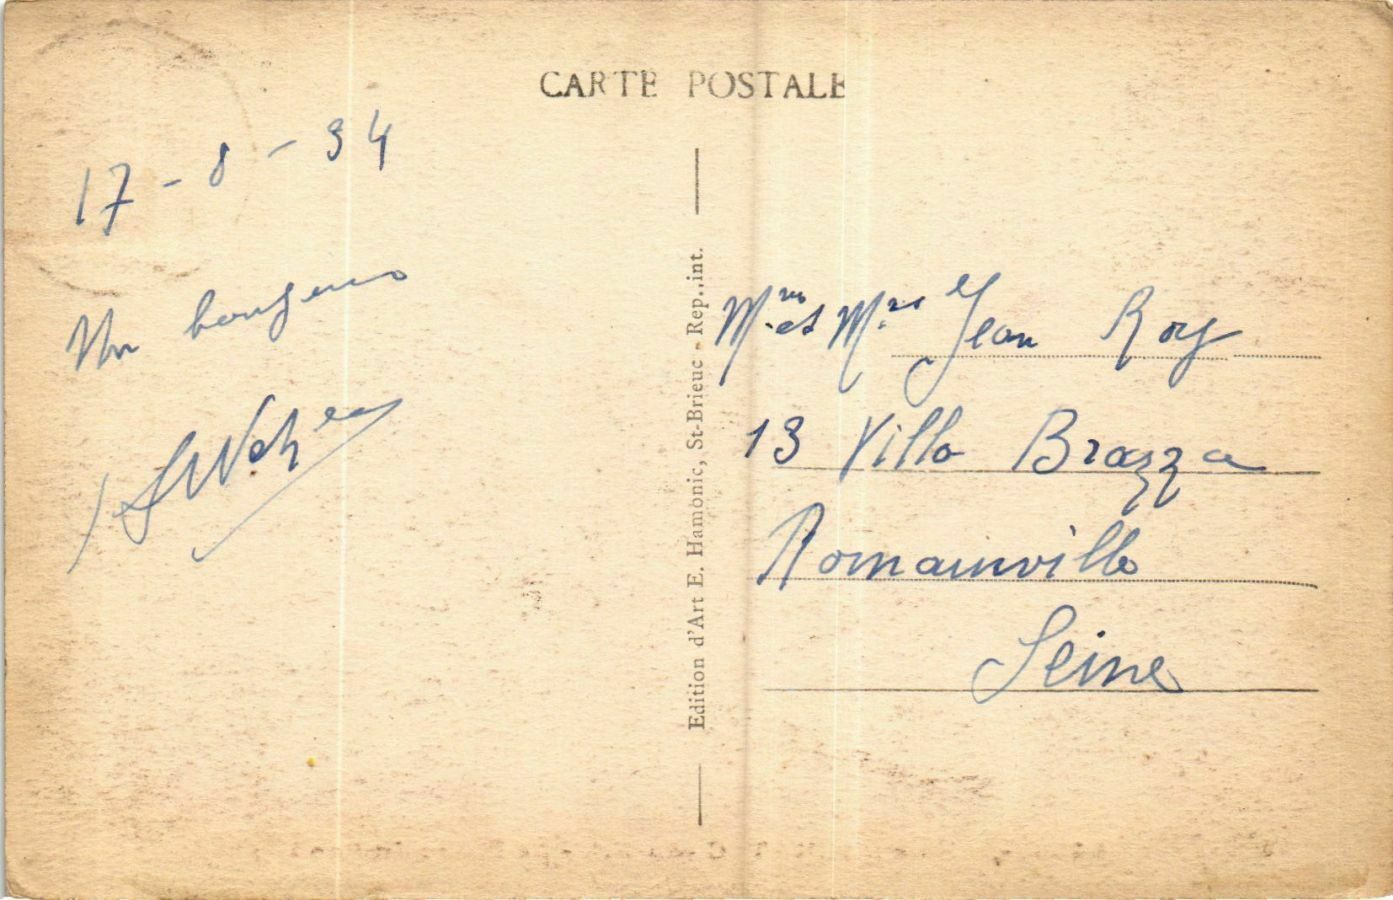 CARTE POSTALE
17-8-34
Un
Edition d'Art E. Hamonic, St-Brieuc - Rep..int.
Mr et Mme Jean Roy
13 Villa Brazza
Romainville
Seine